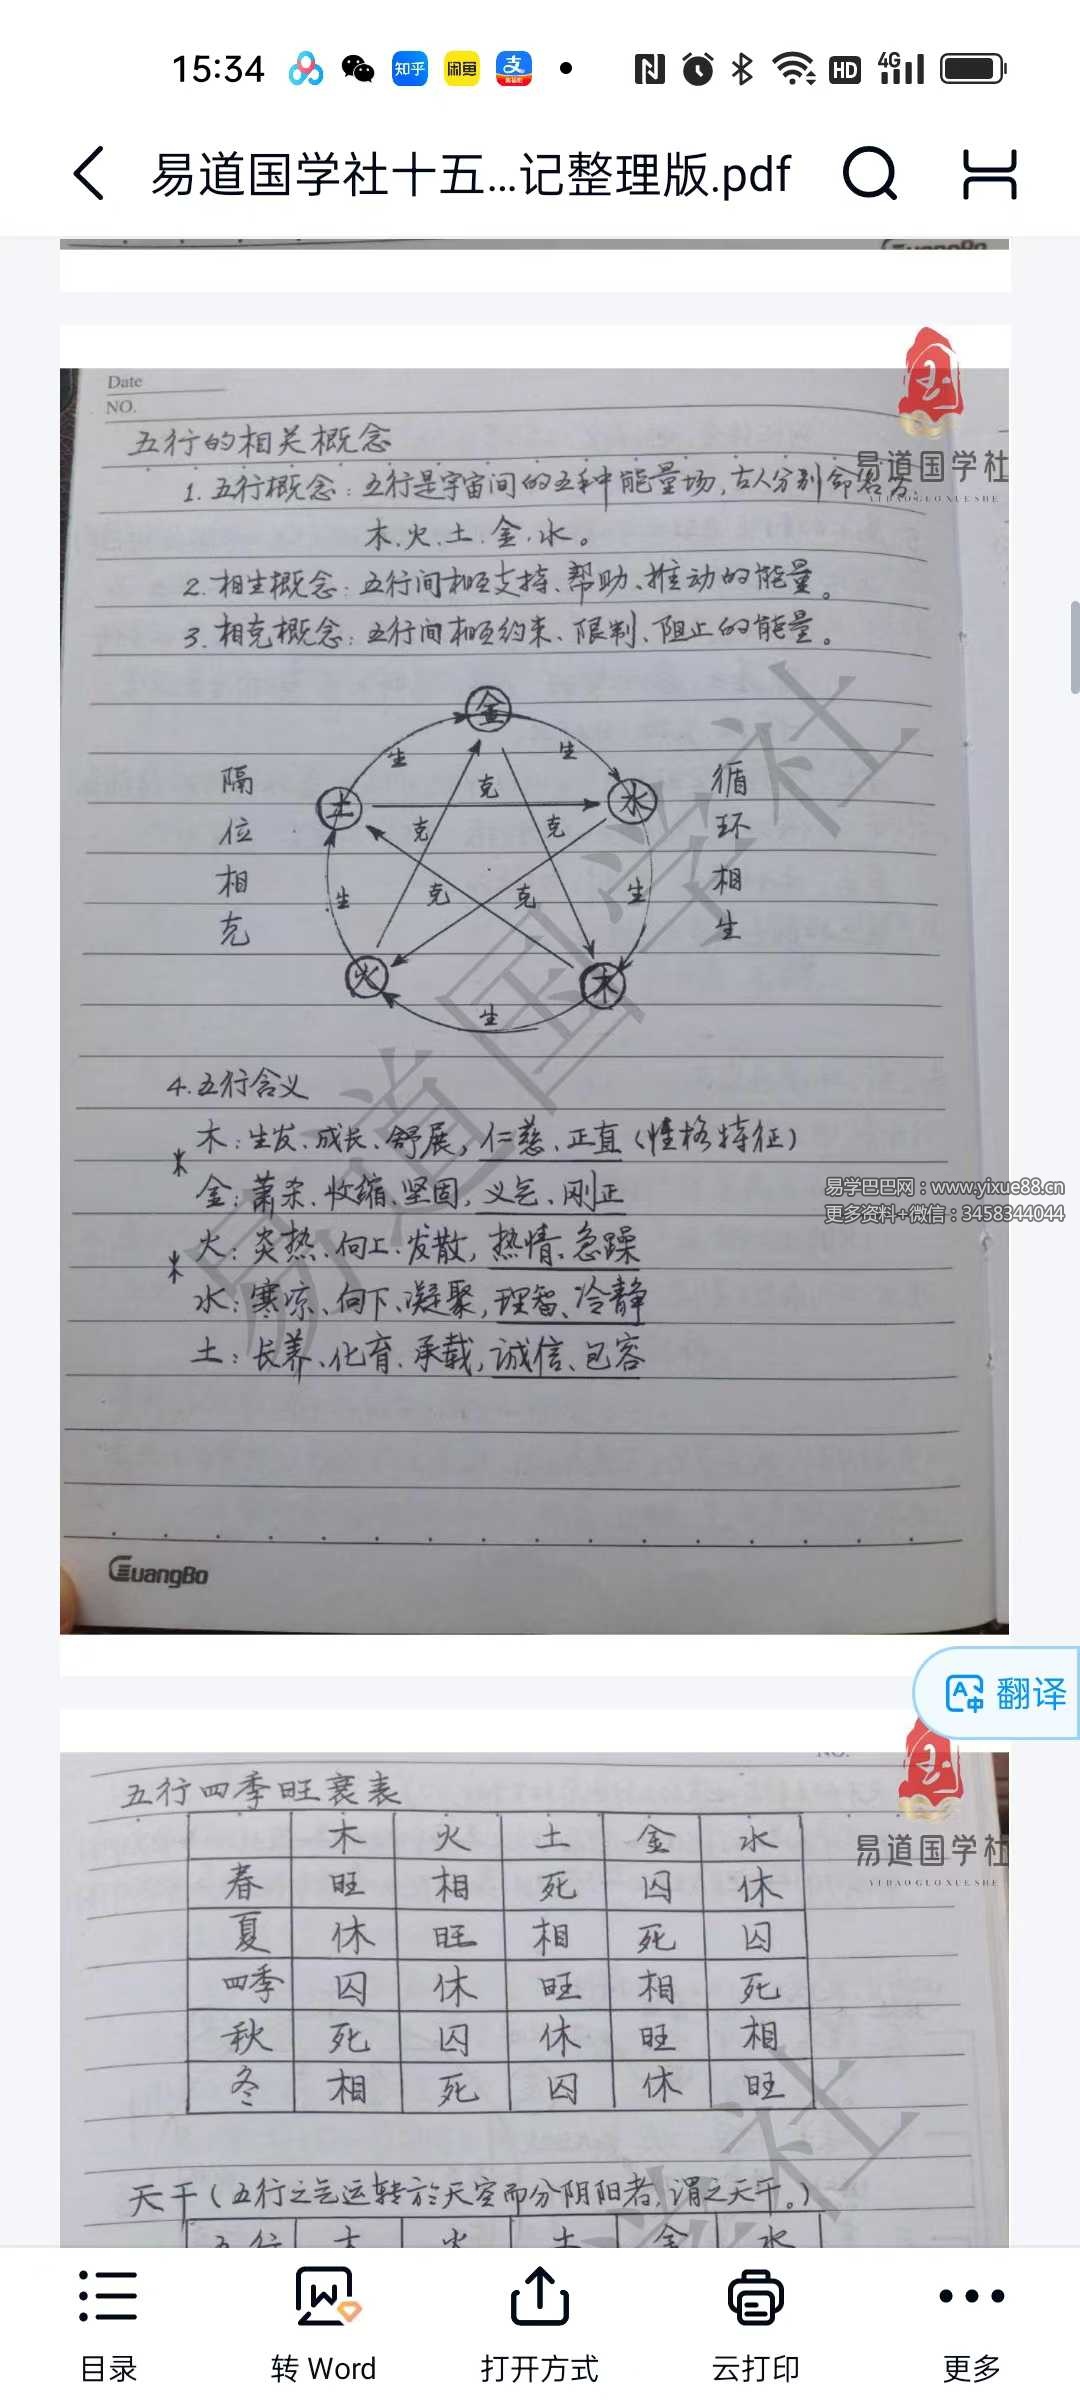 15:34 知乎 闲鱼 支 HD 4G
易道国学社十五...记整理版.pdf
GuangBo
Date
NO.
易道国学社
YIDAOGUOXUESHE
五行的相关概念
1. 五行概念：五行是宇宙间的五种能量场，古人分别命名为：
木、火、土、金、水。
2. 相生概念：五行间相互支持、帮助、推动的能量。
3. 相克概念：五行间相互约束、限制、阻止的能量。
金
生 生
土 克 水
克 克
生 克 克 生
火 木
生
隔位相克
循环相生
4. 五行含义
木：生发、成长、舒展，仁慈、正直（性格特征）
金：萧杀、收缩、坚固，义气、刚正
火：炎热、向上、发散，热情、急躁
水：寒凉、向下、凝聚，理智、冷静
土：长养、化育、承载，诚信、包容
易学巴巴网：www.yixue88.cn
更多资料+微信：3458344044
易道国学社
GuangBo
翻译
NO.
易道国学社
YIDAOGUOXUESHE
五行四季旺衰表
木 火 土 金 水
春 旺 相 死 囚 休
夏 休 旺 相 死 囚
四季 囚 休 旺 相 死
秋 死 囚 休 旺 相
冬 相 死 囚 休 旺
天干（五行之气运转於天空而分阴阳者，谓之天干。）
五行 木 火 土 金 水
学社
目录 转 Word 打开方式 云打印 更多